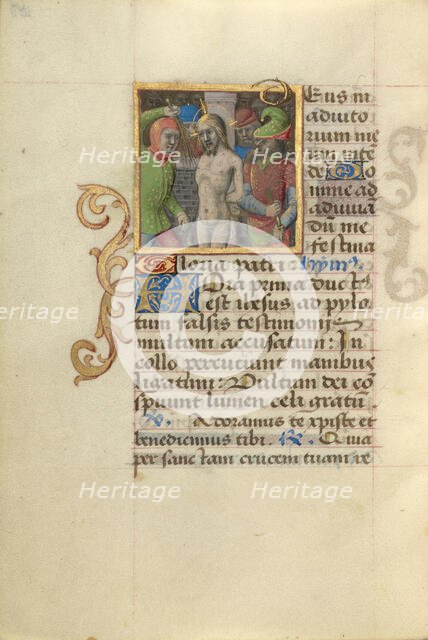 Eus in
adiuto
rium me
um inte
de Do
mine ad
adiuua
dū me
festina
Gloria patri hymᵒ
Ora prima duct⁹
est ihesus ad pyla
tum falsis testimonijs
multum accusatum : In
collo percutiunt manibus
ligatum : Uultum dei co
spuunt lumen celi gratū
℣. Adoramus te xpiste et
benedicimus tibi . ℟. Quia
per sanctam crucem tuam re
Heritage
Heritage
Heritage
Heritage
Heritage
Heritage
Heritage
Heritage